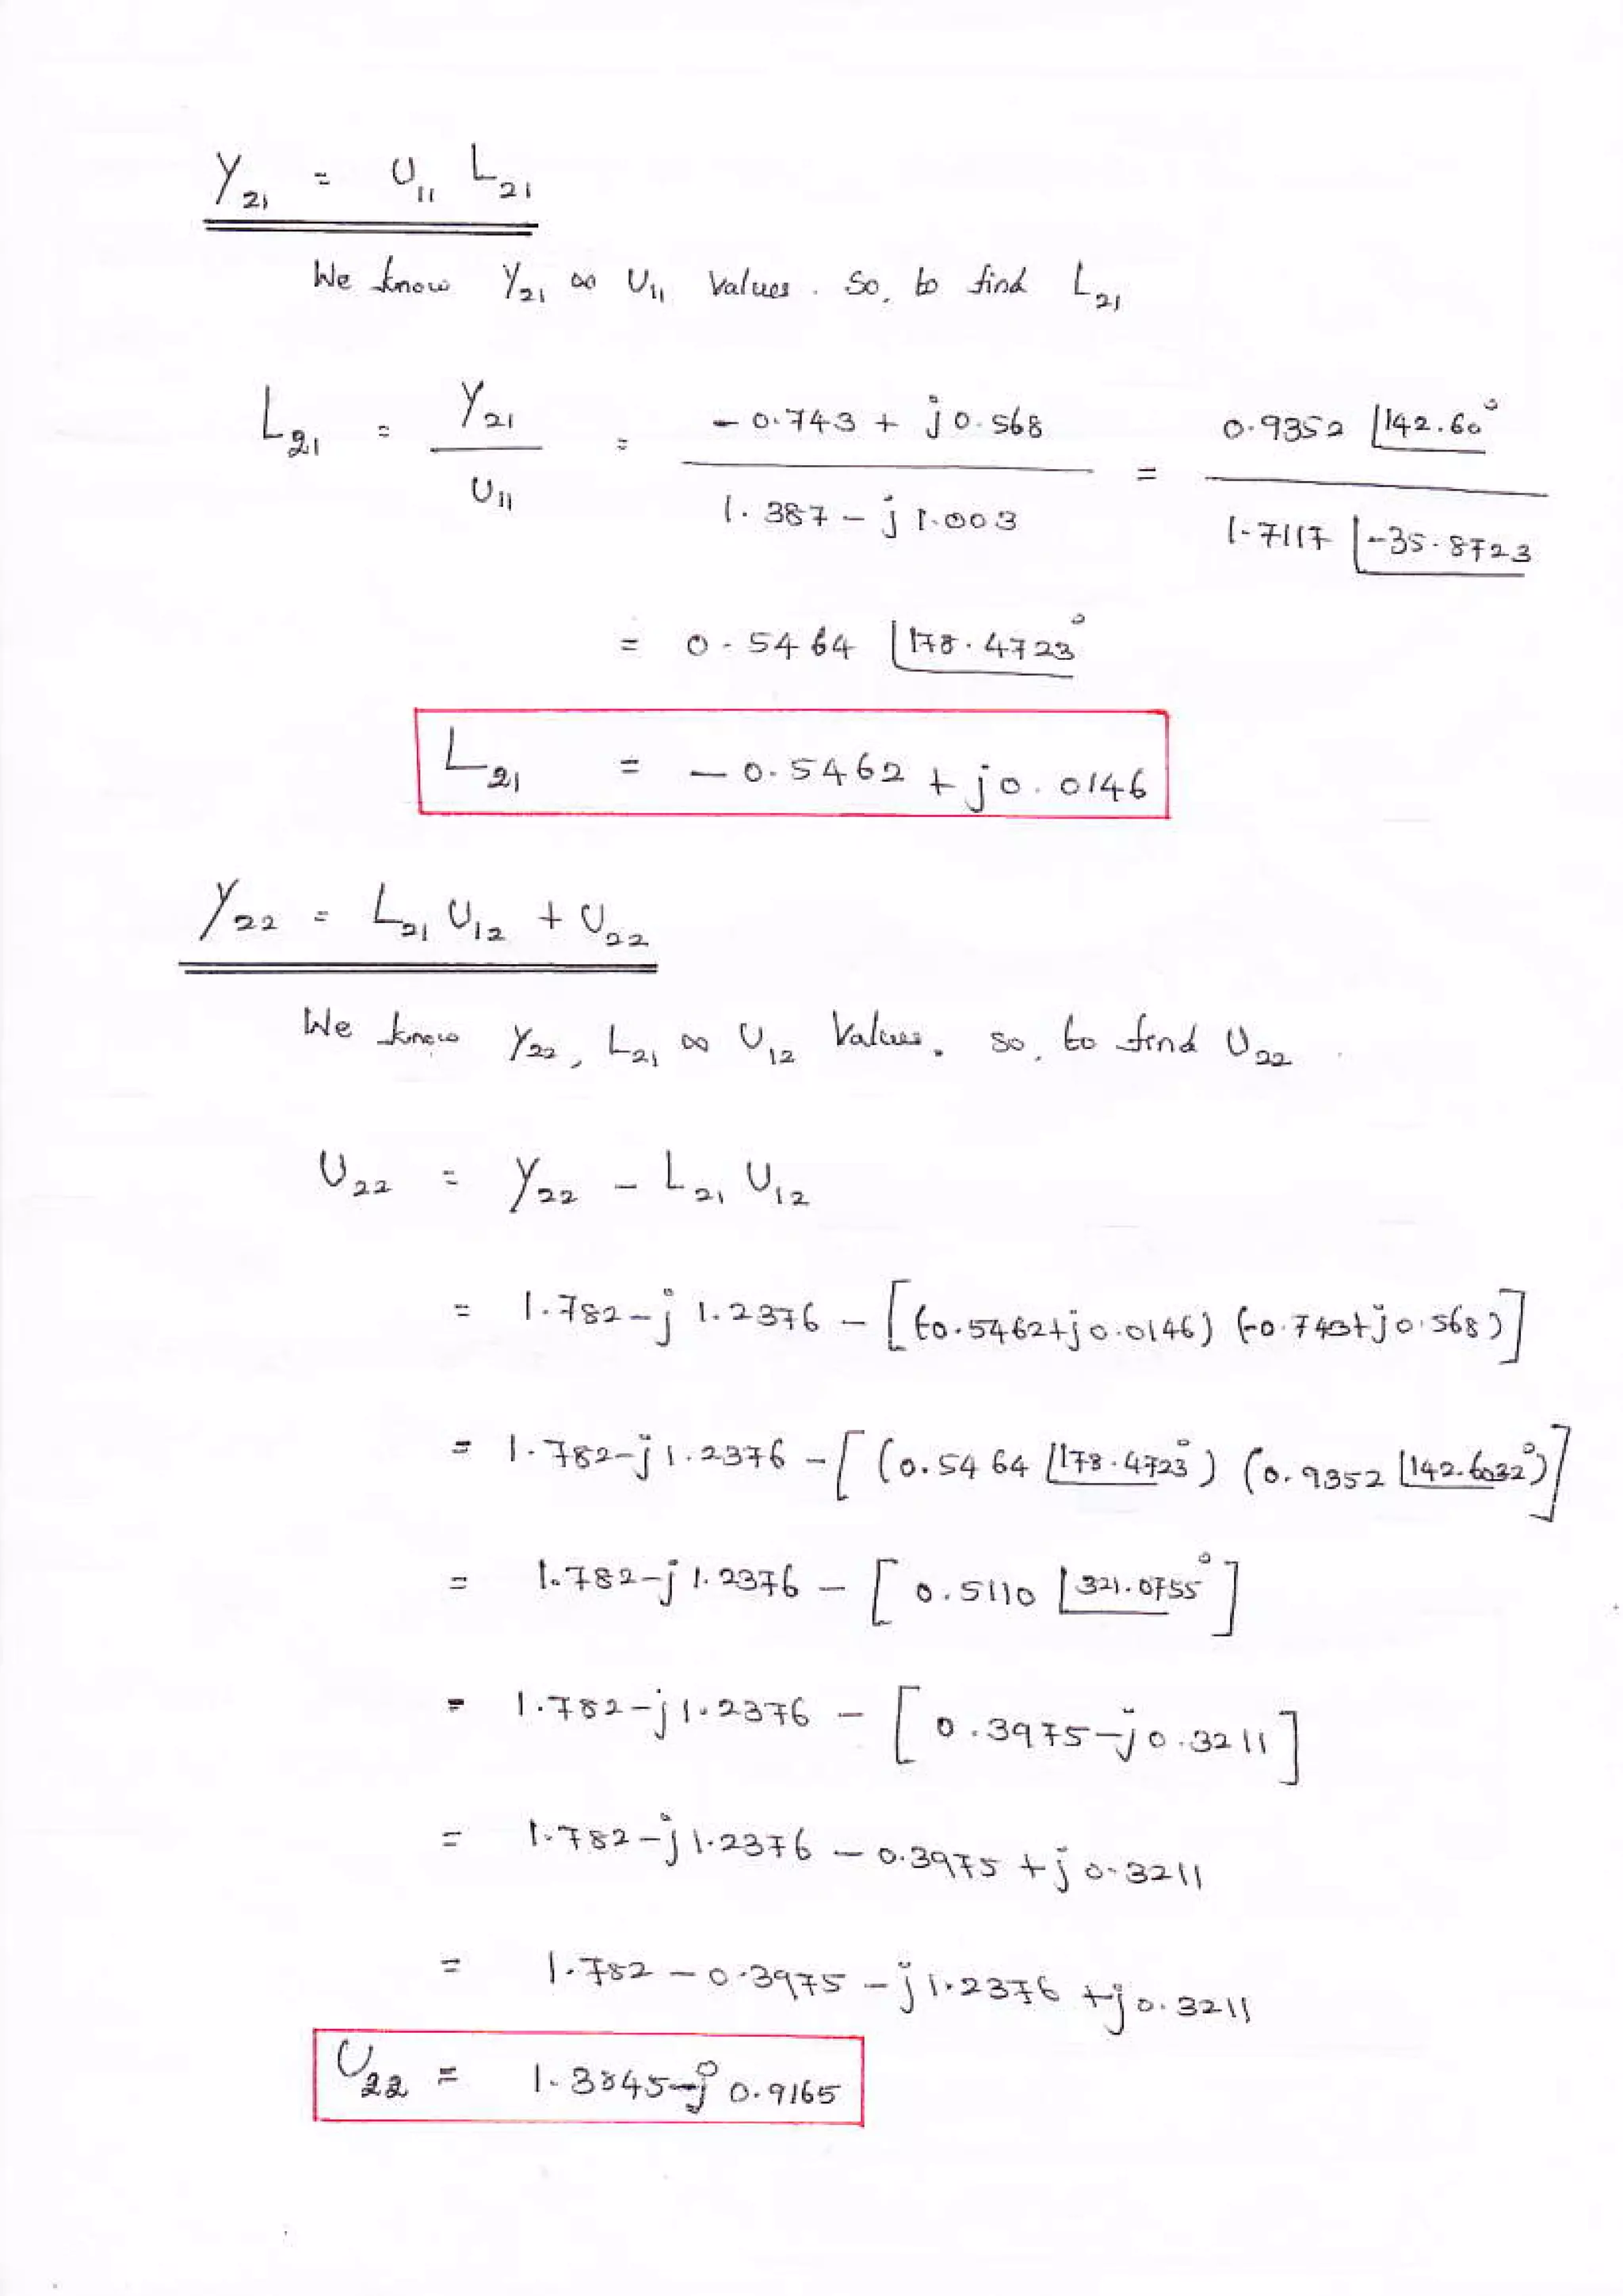 Y₂₁ = U₁₁ L₂₁
We know Y₂₁ ∞ U₁₁ Values. So, to find L₂₁
L₂₁ = Y₂₁ / U₁₁ = (-0.743 + j0.568) / (1.387 - j1.003) = 0.9352 ∠142.60° / 1.7117 ∠-35.8723
= 0.5464 ∠178.4723°
L₂₁ = -0.5462 + j0.0146
Y₂₂ = L₂₁ U₁₂ + U₂₂
We know Y₂₂, L₂₁ ∞ U₁₂ Values. so, to find U₂₂.
U₂₂ = Y₂₂ - L₂₁ U₁₂
= 1.782-j1.2376 - [(-0.5462+j0.0146) (-0.743+j0.568)]
= 1.782-j1.2376 - [(0.5464 ∠178.4723°) (0.9352 ∠142.6032°)]
= 1.782-j1.2376 - [0.5110 ∠321.0755°]
= 1.782-j1.2376 - [0.3975-j0.3211]
= 1.782-j1.2376 - 0.3975 + j0.3211
= 1.782 - 0.3975 - j1.2376 + j0.3211
U₂₂ = 1.3845-j0.9165